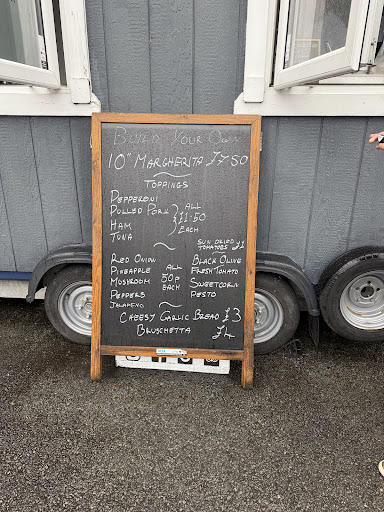 Build Your Own
10" Margherita £7.50
Toppings
Pepperoni
Pulled Pork
Ham
Tuna
All
£1.50
Each
Sun Dried
Tomatoes £1
Red Onion
Pineapple
Mushroom
Peppers
Jalapeno
All
50p
Each
Black Olive
Fresh Tomato
Sweetcorn
Pesto
Cheesy Garlic Bread £3
Bruschetta £4